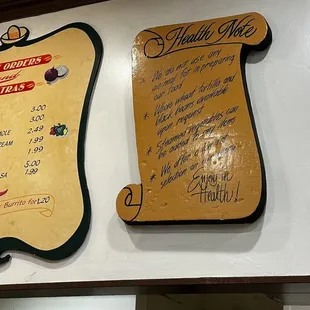 ORDERS
and
TRAS
3.00
3.00
HOLE 2.49
REAM 1.99
1.99
5.00
SA 1.99
Burrito for 1.20
Health Note
We do not use any
animal fat in preparing
our food
* Whole wheat tortilla and
black beans available
upon request
* Steamed vegetables can
be added to any item
* We offer
selection of
Enjoy in
Health!